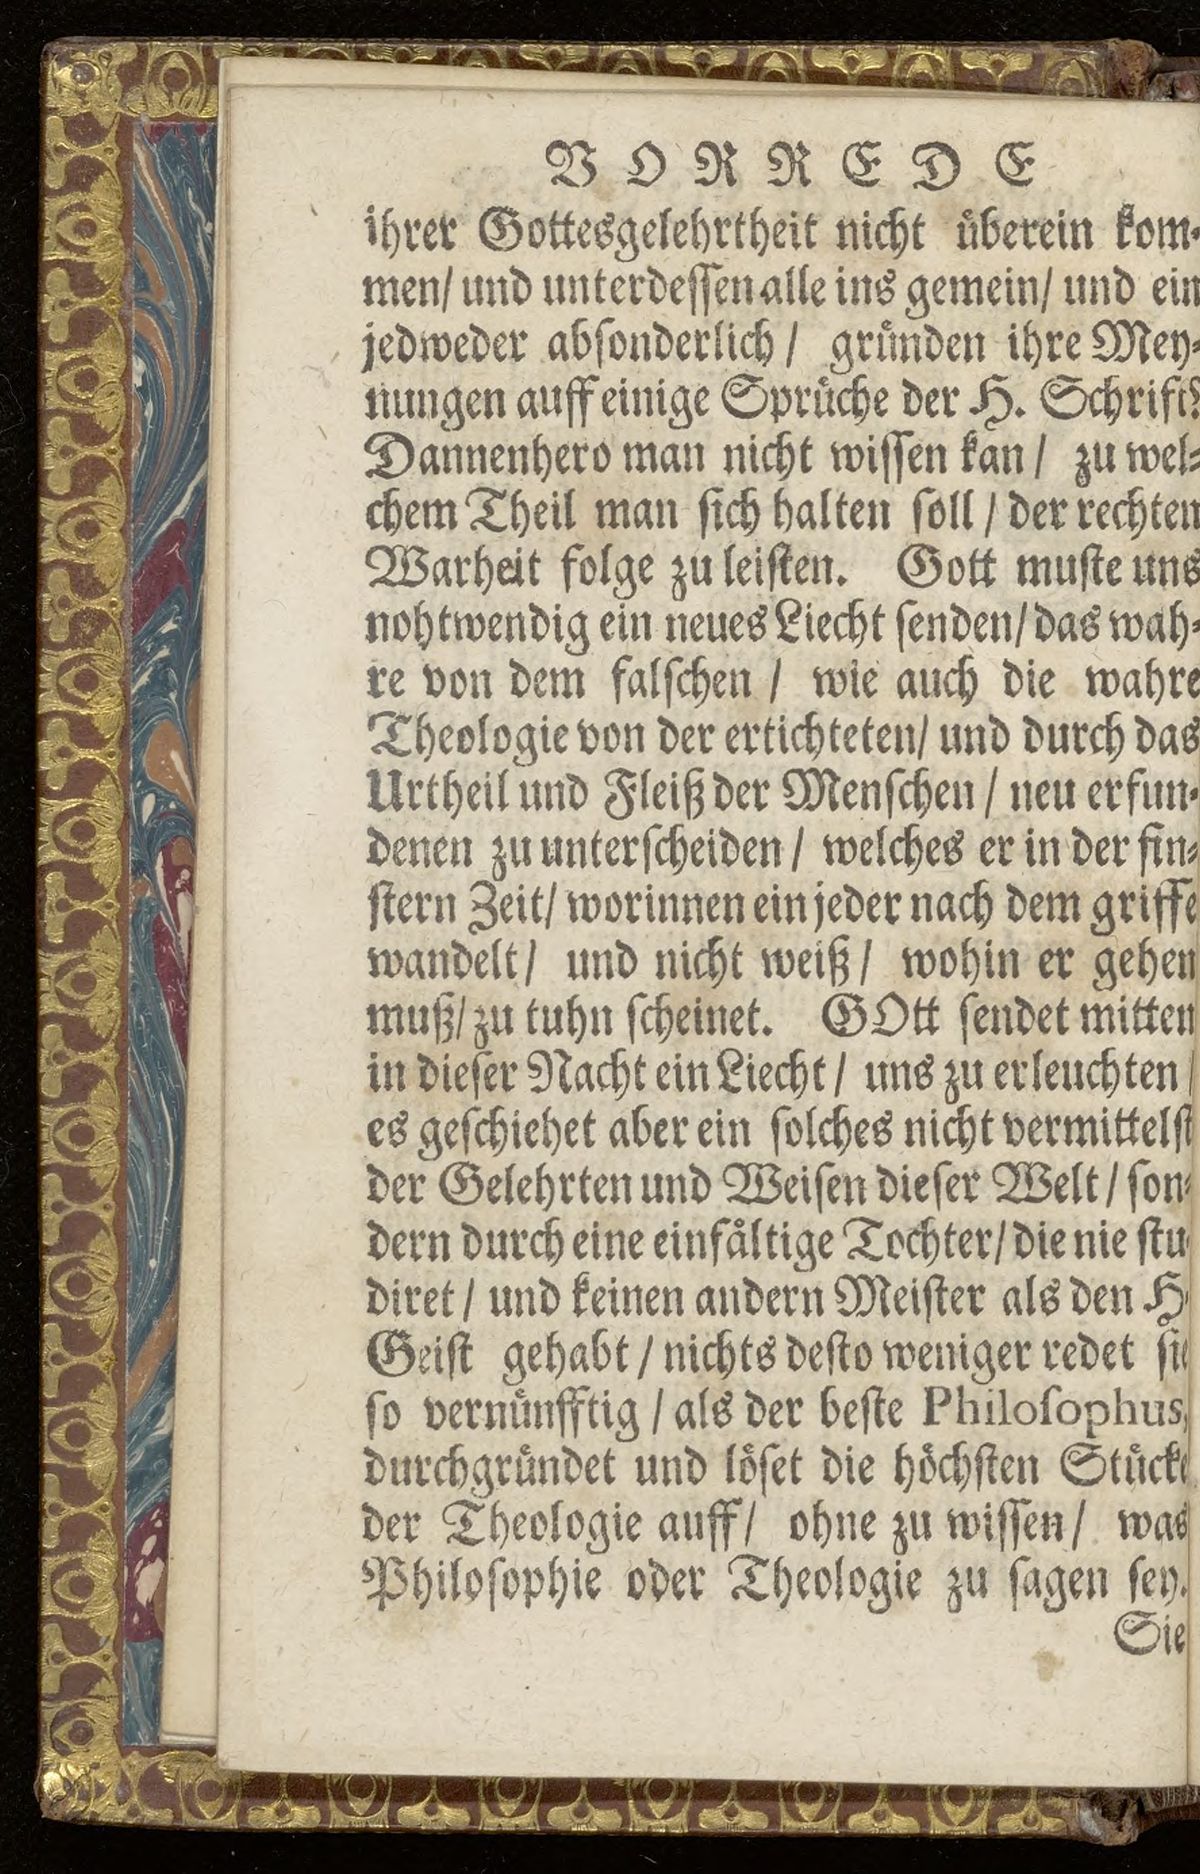 VORREDE
ihrer Gottesgelehrtheit nicht uͤberein kom-
men/ und unterdeſſen alle ins gemein/ und ein
jedweder abſonderlich/ gruͤnden ihre Mey-
nungen auff einige Spruͤche der H. Schrift?
Dannenhero man nicht wiſſen kan/ zu wel-
chem Theil man ſich halten ſoll/ der rechten
Warheit folge zu leiſten. Gott muſte uns
nohtwendig ein neues Liecht ſenden/ das wah-
re von dem falſchen/ wie auch die wahre
Theologie von der ertichteten/ und durch das
Urtheil und Fleiß der Menſchen/ neu erfun-
denen zu unterſcheiden/ welches er in der fin-
ſtern Zeit/ worinnen ein jeder nach dem griffe
wandelt/ und nicht weiß/ wohin er gehen
muß/ zu tuhn ſcheinet. GOtt ſendet mitten
in dieſer Nacht ein Liecht/ uns zu erleuchten/
es geſchiehet aber ein ſolches nicht vermittelſt
der Gelehrten und Weiſen dieſer Welt/ ſon-
dern durch eine einfaͤltige Tochter/ die nie ſtu-
diret/ und keinen andern Meiſter als den H.
Geiſt gehabt/ nichts deſto weniger redet ſie
ſo vernuͤnfftig/ als der beſte Philoſophus,
durchgruͤndet und loͤſet die hoͤchſten Stuͤcke
der Theologie auff/ ohne zu wiſſen/ was
Philoſophie oder Theologie zu ſagen ſey.
Sie